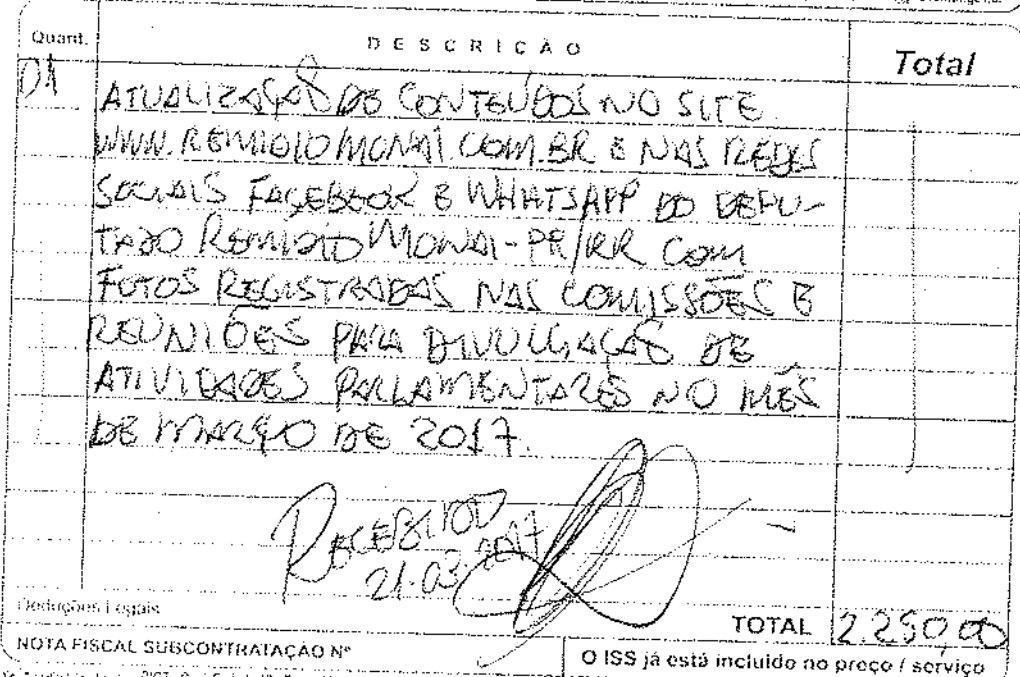 Quant. DESCRIÇÃO Total
01 ATUALIZAÇÃO DE CONTEÚDOS NO SITE
WWW.REMIDIOMONAI.COM.BR E NAS REDES
SOCIAIS FACEBOOK E WHATSAPP DO DEPU-
TADO REMIDIO MONAI-PR/RR COM
FOTOS REGISTRADAS NAS COMISSÕES E
REUNIÕES PARA DIVULGAÇÃO DE
ATIVIDADES PARLAMENTARES NO MÊS
DE MARÇO DE 2017.
RECEBIDO
21.03.2017
Deduções Legais
TOTAL 2.250,00
NOTA FISCAL SUBCONTRATAÇÃO Nº
O ISS já está incluido no preço / serviço